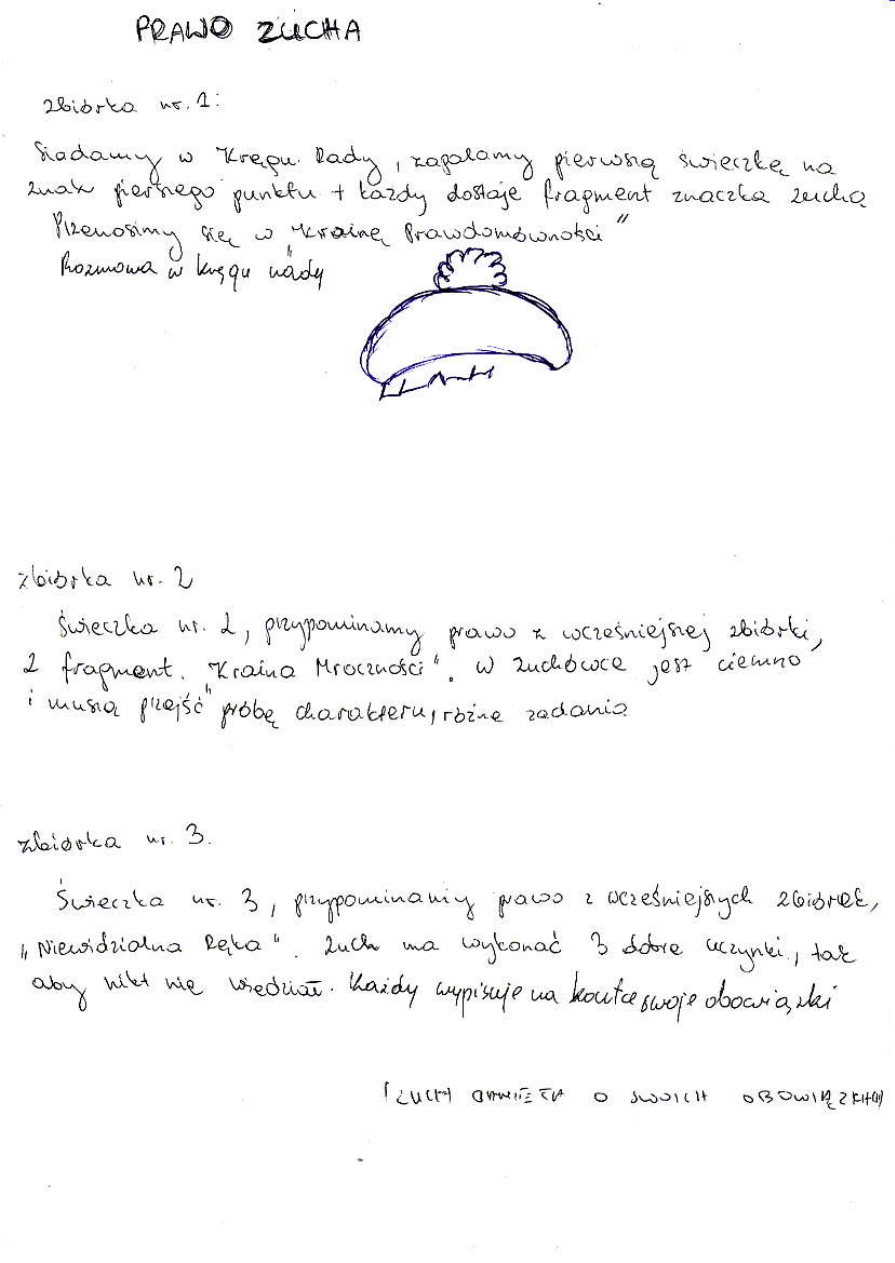 PRAWO ZUCHA
zbiórka nr. 1:
Siadamy w Kręgu Rady, zapalamy pierwszą świeczkę na
znak pierwszego punktu + każdy dostaje fragment znaczka zucha
Przenosimy się w "Krainę Prawdomówności"
Rozmowa w kręgu rady
zbiórka nr. 2
Świeczka nr. 2, przypominamy prawo z wcześniejszej zbiórki,
2 fragment. "Kraina Mroczności". W zuchówce jest ciemno
i muszą przejść "próbę charakteru, różne zadania
zbiórka nr. 3.
Świeczka nr. 3, przypominamy prawo z wcześniejszych zbiórek,
"Niewidzialna Ręka". Zuch ma wykonać 3 dobre uczynki, tak
aby nikt nie wiedział. Każdy wypisuje na kartce swoje obowiązki
ZUCH PAMIĘTA O SWOICH OBOWIĄZKACH